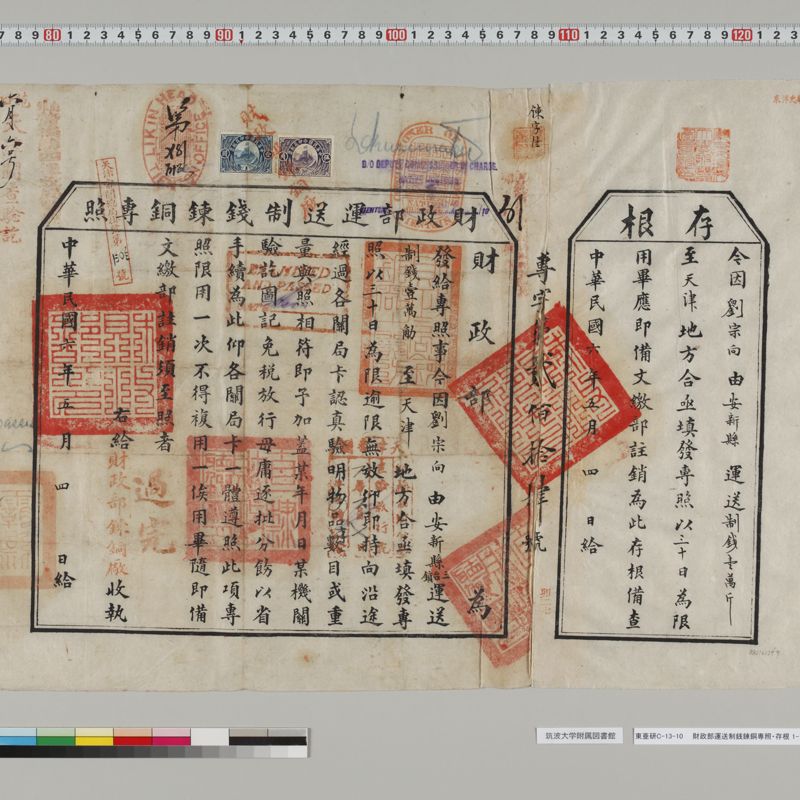 存根
令因劉宗向由安新縣運送制錢壹萬斤
至天津地方合亟填發專照以三十日為限
用畢應即備文繳部註銷為此存根備查
中華民國六年五月四日給
專字第貳佰拾肆號
財政部運送制錢鍊銅專照
財政部為
發給專照事今因劉宗向由安新縣運送
制錢壹萬觔至天津地方合亟填發專
照以三十日為限逾限無效仰即時向沿途
經過各關局卡認真驗明物品數目或重
量與照相符即予加蓋某年月日某機關
驗訖圖記免稅放行毋庸逐批分飭以省
手續為此仰各關局卡一體遵照此項專
照限用一次不得複用一俟用畢隨即備
文繳部註銷須至照者
右給財政部鍊銅廠收執
中華民國六年五月四日給
過完
LIKIN HEAD OFFICE
D/O DEPUTY COMMISSIONER IN CHARGE.
EXAMINED AND PASSED
筑波大学附属図書館
東亜研C-13-10 財政部運送制銭鍊銅専照・存根 1-
80 90 100 110 120